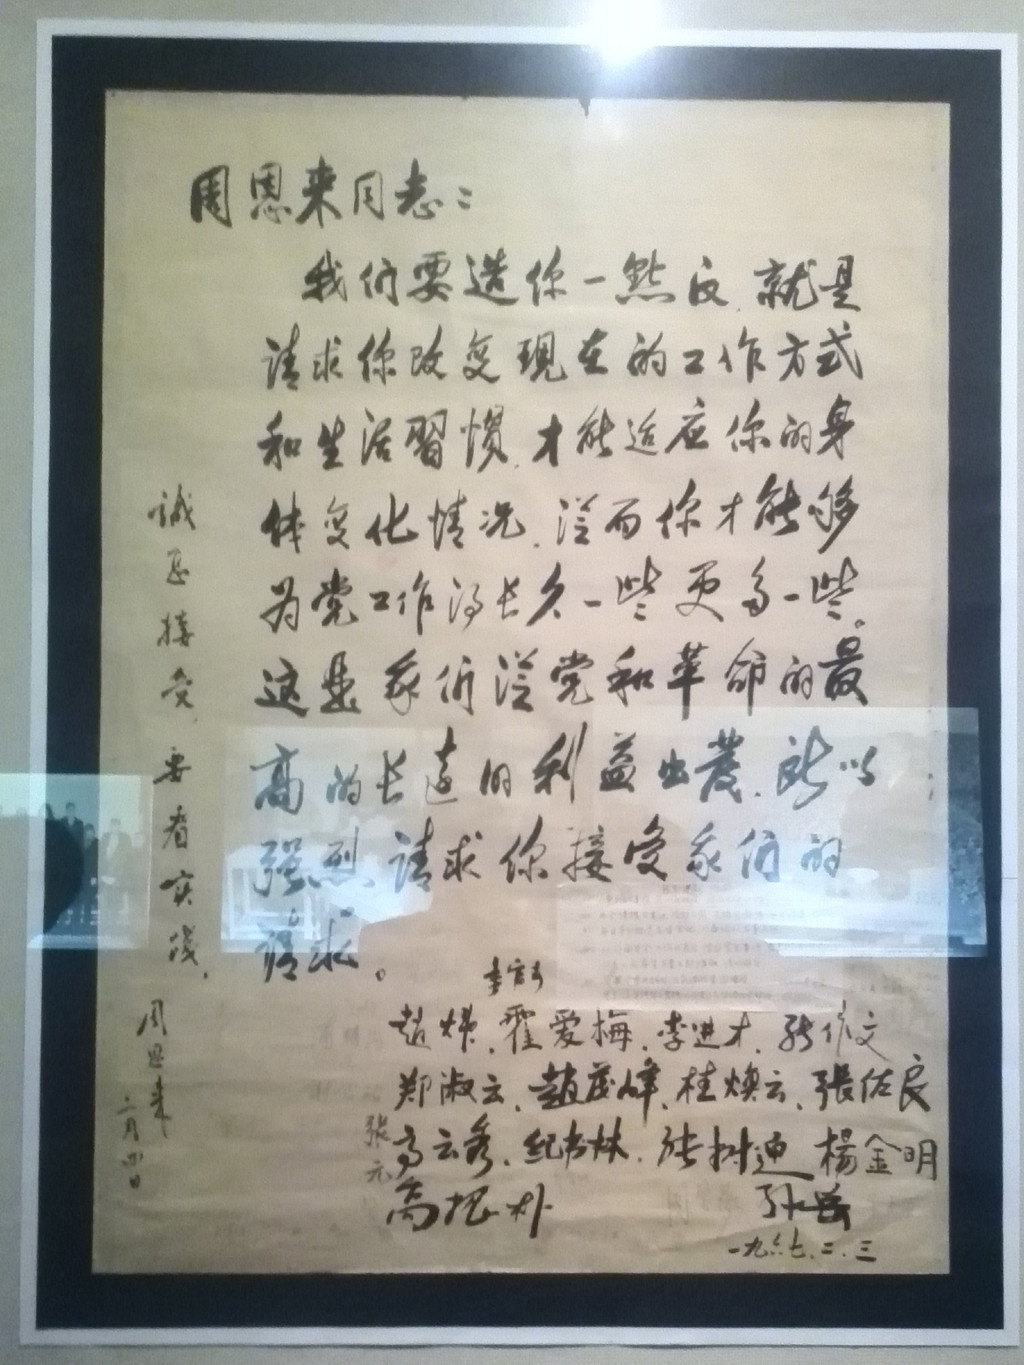 周恩来同志：
我们要造你一点反，就是
请求你改变现在的工作方式
和生活習惯，才能适应你的身
体变化情况，从而你才能够
为党工作得长久一些更多一些。
这是我们从党和革命的最
高的长远的利益出发，所以
强烈请求你接受我们的
请求。
诚恳接受，要看实践。
周恩来
二月四日
赵炜、霍爱梅、李进才、张作文
郑淑云、赵茂峰、桂焕云、張佐良
张元
高云秀、纪书林、张树迎 楊金明
高振朴 孙岳
一九六七.二.三